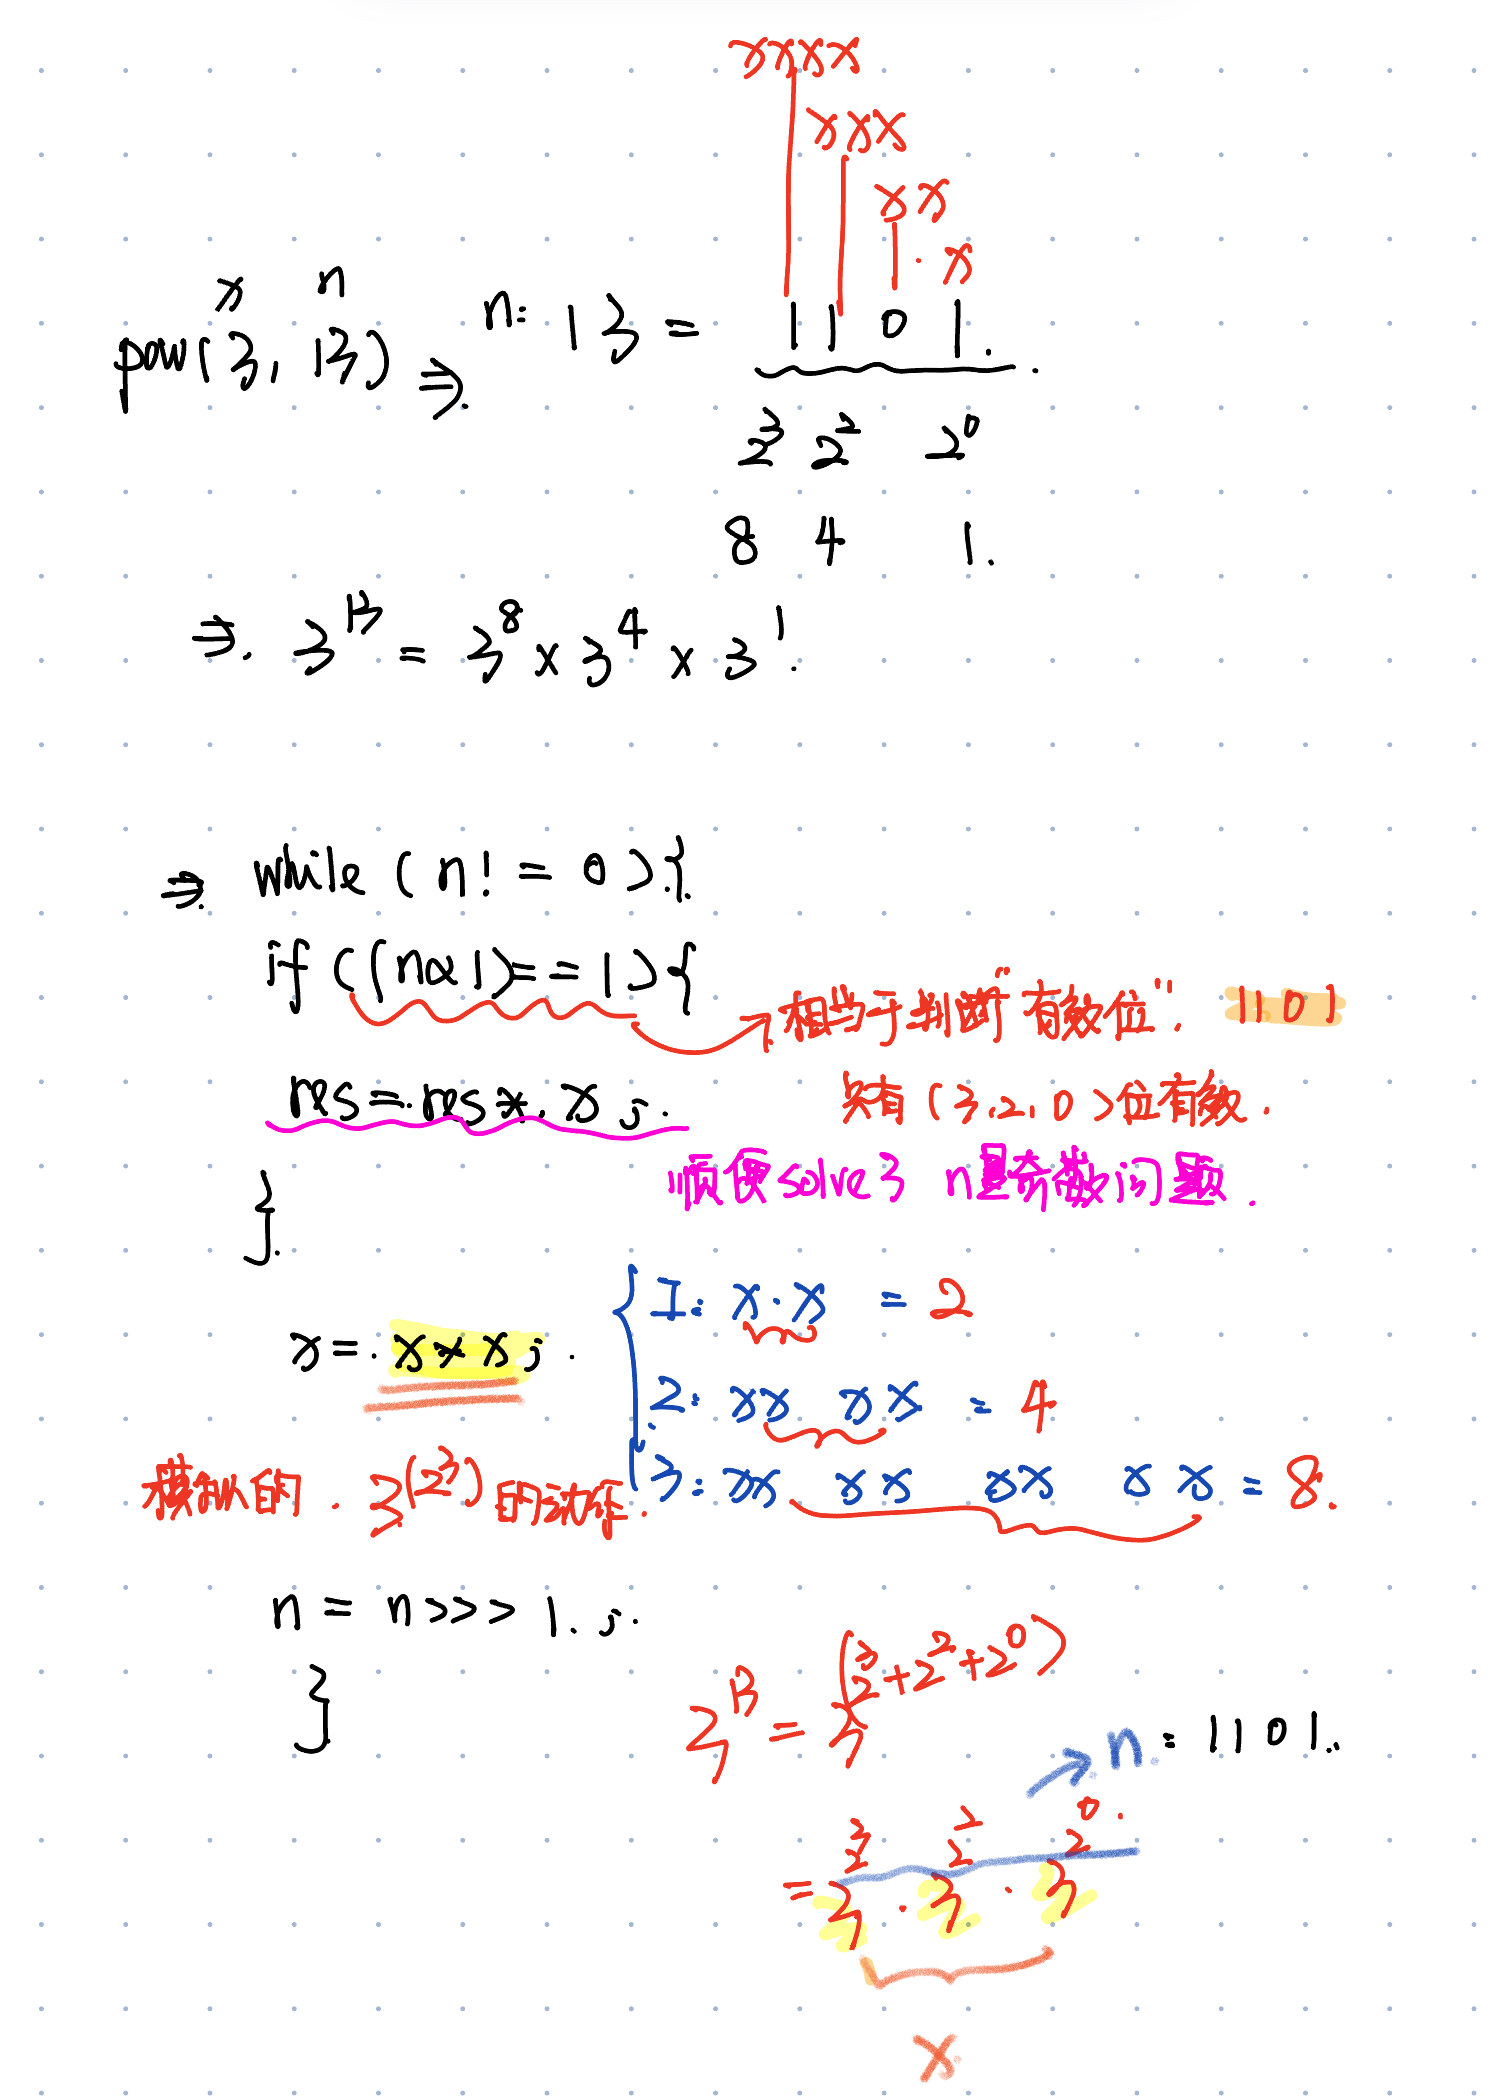 xxxx
xxx
xx
x
x n
pow(3, 13) ⇒. n: 13 = 1101.
2³ 2² 2⁰
8 4 1.
⇒. 3¹³ = 3⁸ x 3⁴ x 3¹.
⇒ while (n! = 0){.
if ((n&1)==1){
相当于判断"有效位". 1101
res=.res*.x;.
只有(3,2,0)位有效.
顺便solve了 n是奇数问题.
}.
1: x·x = 2
x=.x*x;.
2: xx xx = 4
3: xx xx xx xx = 8.
模拟的. 3^(2³) 的动作.
n = n>>>1.;.
}
3¹³ = 3^(2³+2²+2⁰)
→ n. : 1101..
= 3^2³ · 3^2² · 3^2⁰.
x.